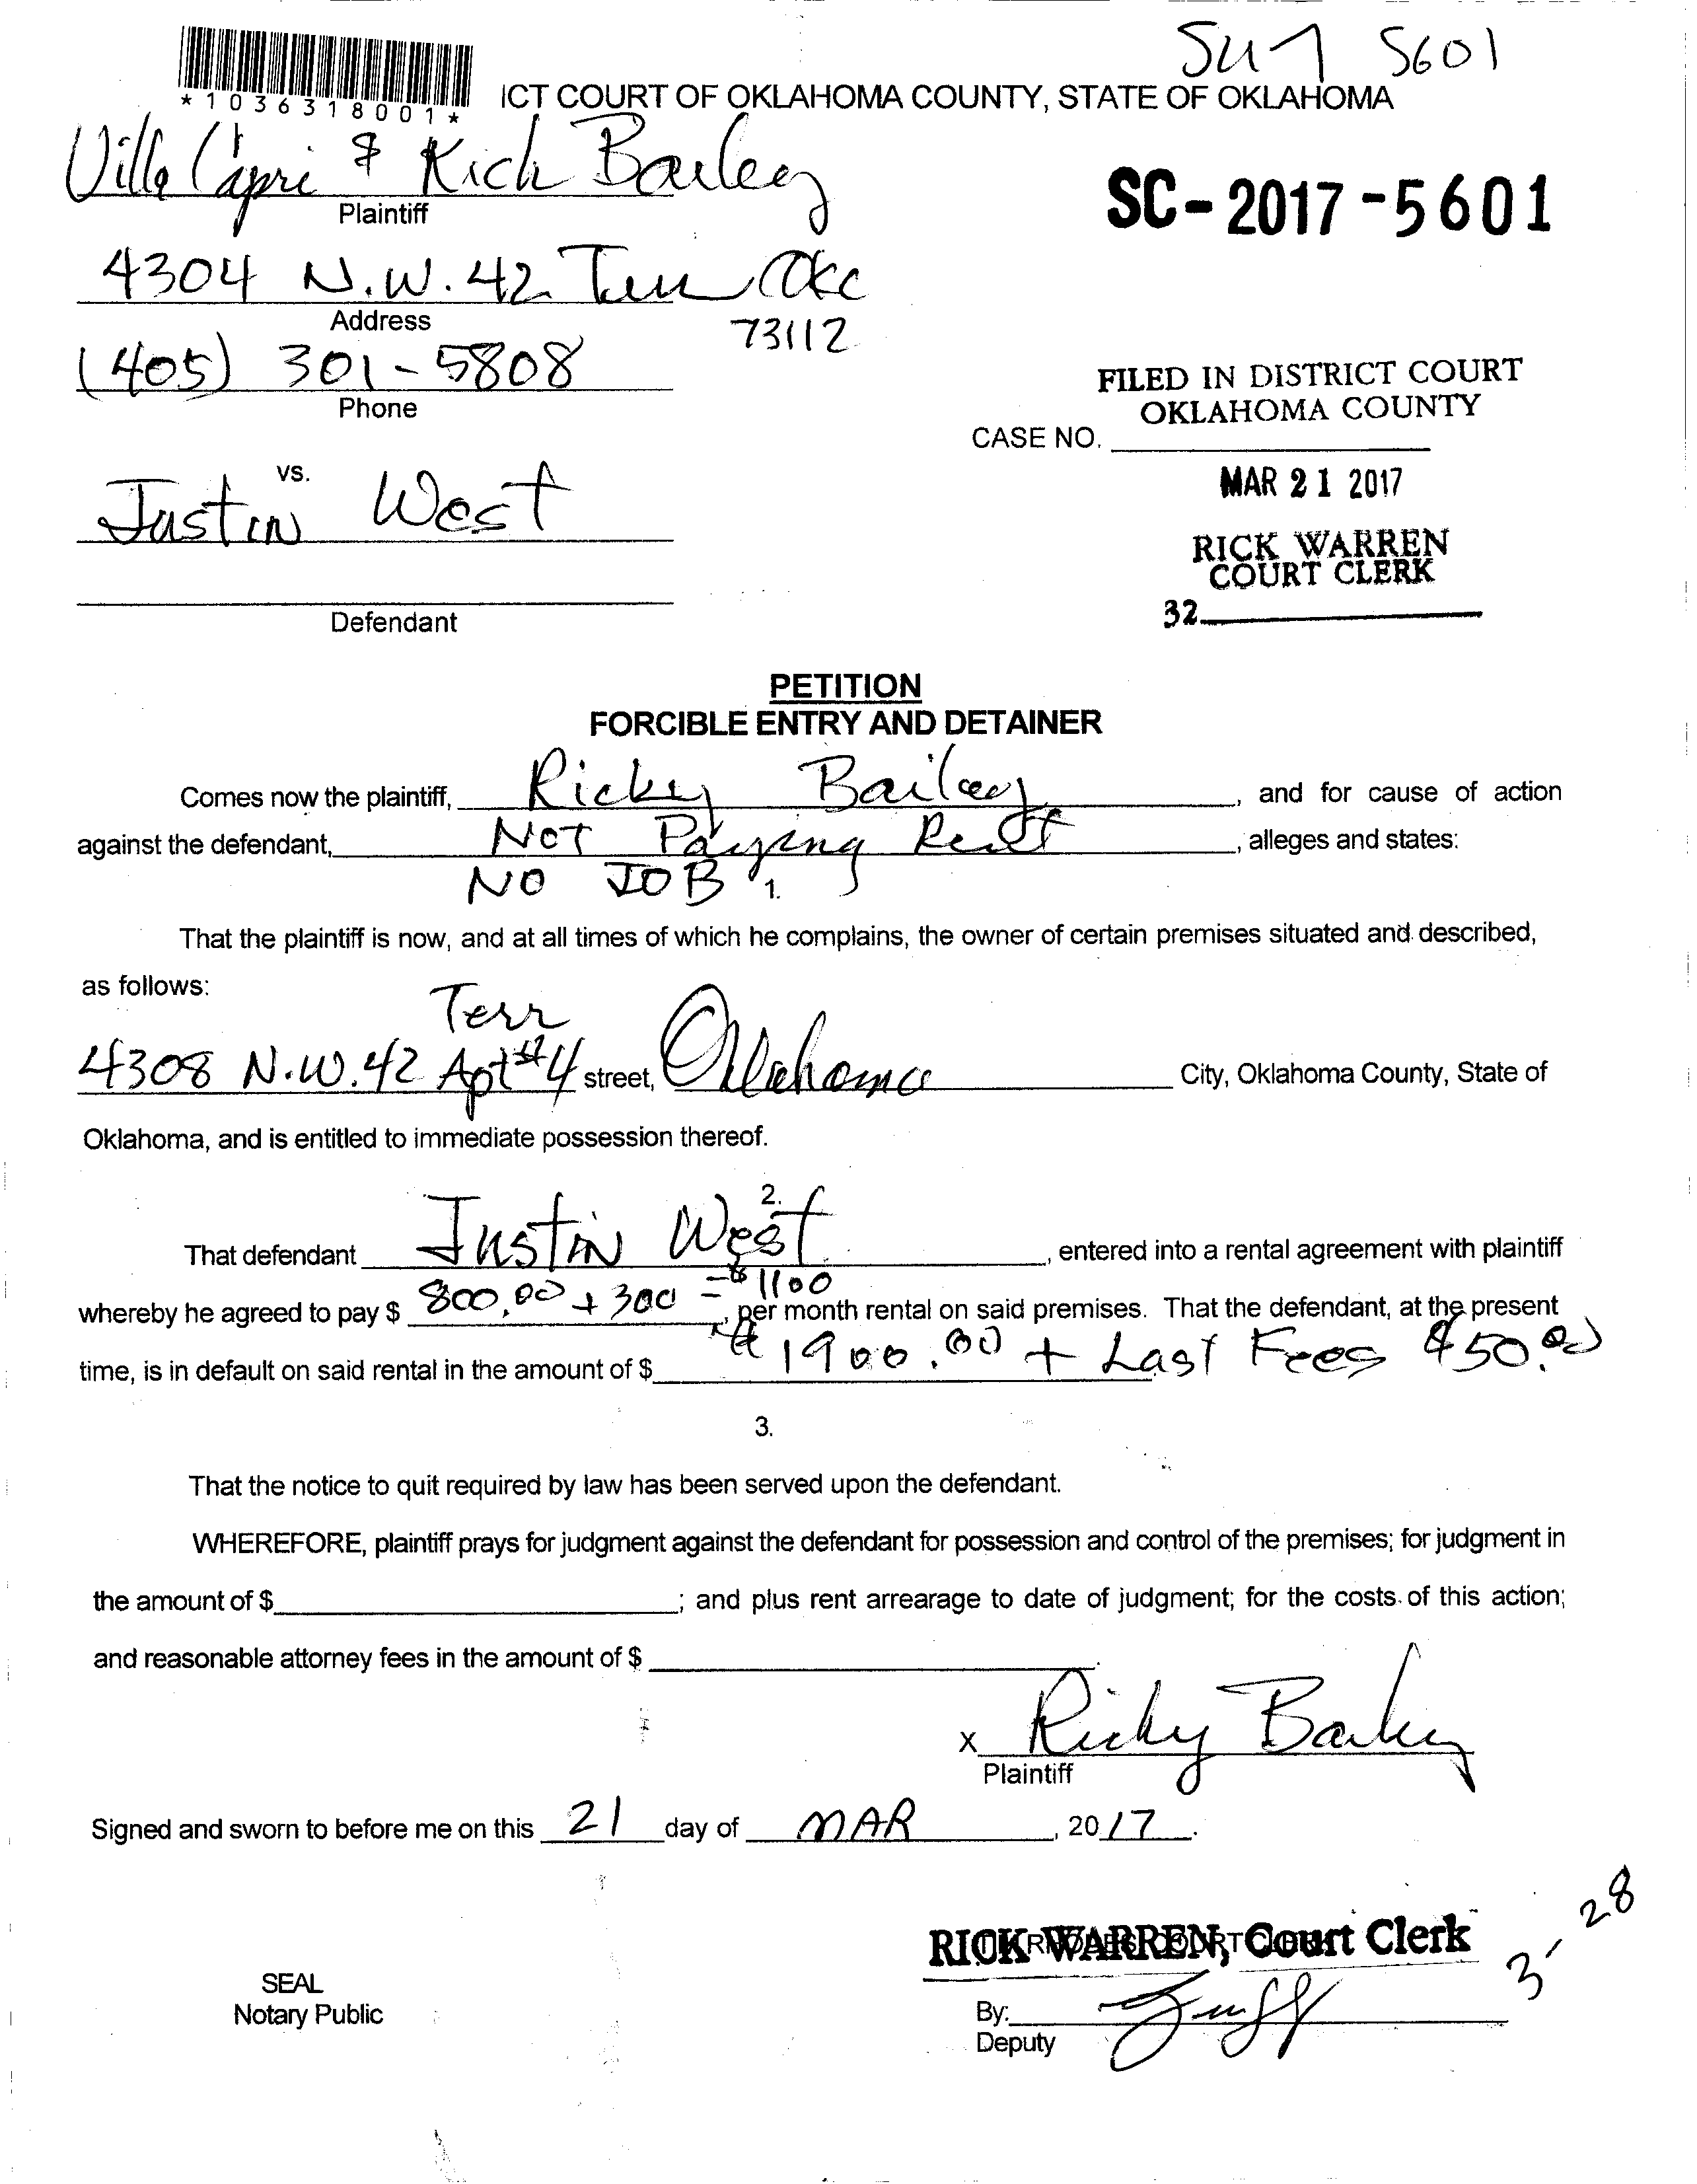 SC-2017-5601
5601
*1036318001*
ICT COURT OF OKLAHOMA COUNTY, STATE OF OKLAHOMA
Villa Capri & Rick Bailey
Plaintiff
4304 N.W. 42 Terr OKC
Address
73112
(405) 301-5808
Phone
FILED IN DISTRICT COURT
OKLAHOMA COUNTY
CASE NO.
MAR 21 2017
vs.
Justin West
RICK WARREN
COURT CLERK
32
Defendant
PETITION
FORCIBLE ENTRY AND DETAINER
Comes now the plaintiff, Ricky Bailey, and for cause of action
against the defendant, Not Paying Rent, alleges and states:
NO JOB
1.
That the plaintiff is now, and at all times of which he complains, the owner of certain premises situated and described,
as follows:
Terr
4308 N.W. 42 Apt #4 street, Oklahoma City, Oklahoma County, State of
Oklahoma, and is entitled to immediate possession thereof.
2.
That defendant Justin West, entered into a rental agreement with plaintiff
whereby he agreed to pay $ 800.00 + 300 = $1100, per month rental on said premises. That the defendant, at the present
time, is in default on said rental in the amount of $ $1900.00 + Last Fees $50.00
3.
That the notice to quit required by law has been served upon the defendant.
WHEREFORE, plaintiff prays for judgment against the defendant for possession and control of the premises; for judgment in
the amount of $ ; and plus rent arrearage to date of judgment; for the costs of this action;
and reasonable attorney fees in the amount of $ .
x Ricky Bailey
Plaintiff
Signed and sworn to before me on this 21 day of MAR, 2017.
3-28
RICK WARREN, Court Clerk
SEAL
Notary Public
By:
Deputy